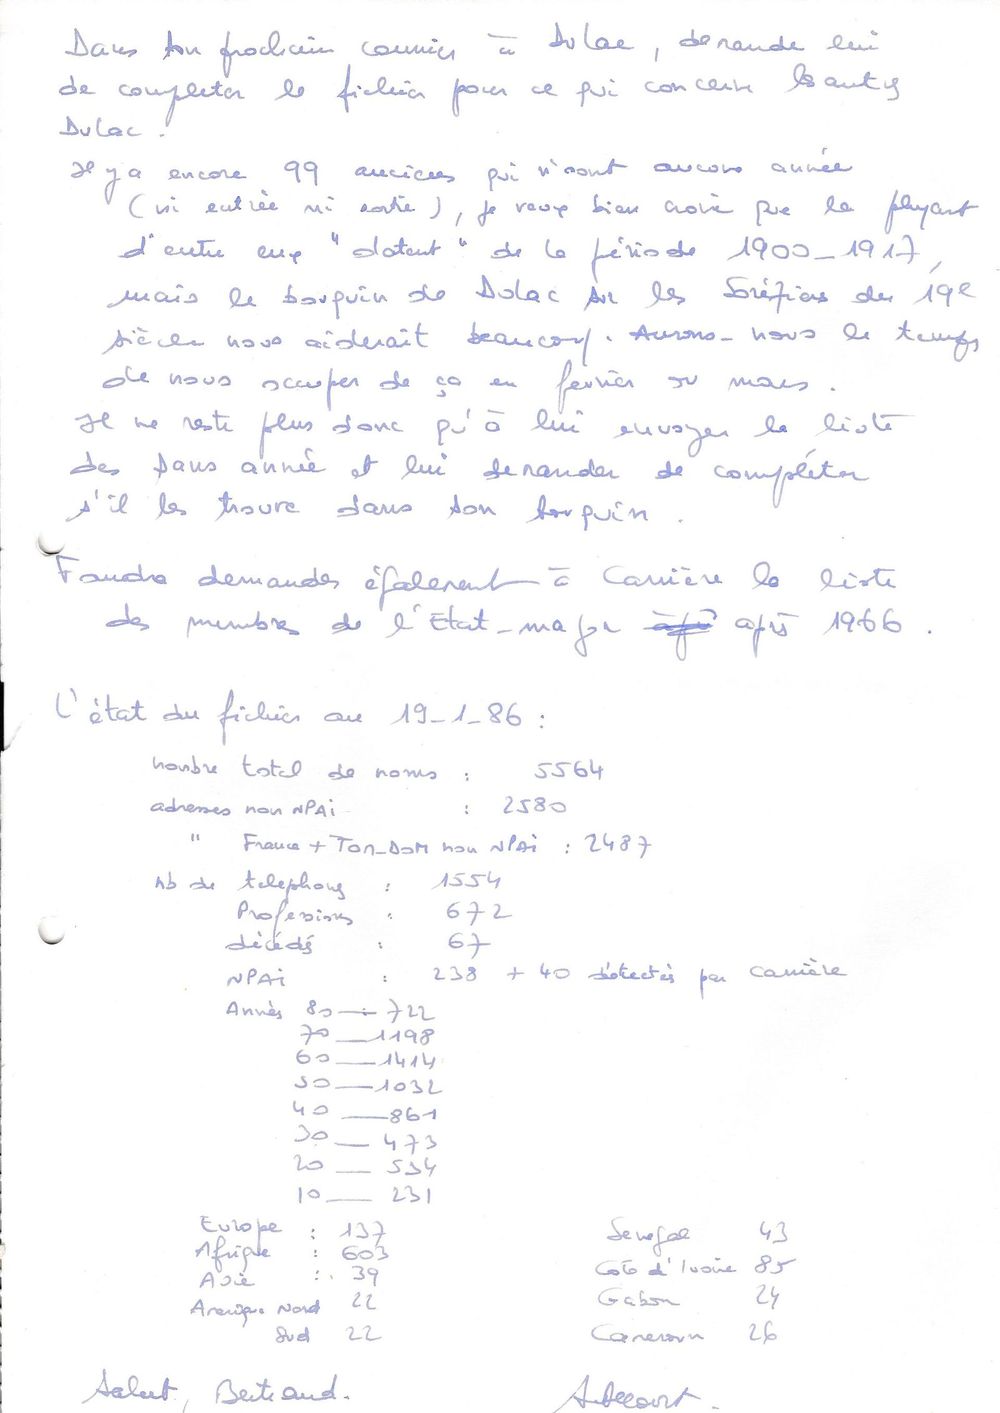 Dans ton prochain courrier à Dulac, demande lui
de completer le fichier pour ce qui concerne
Dulac.
Il y a encore 99 anciens qui n'ont aucune année
(ni entrée ni sortie), je veux bien croire que la plupart
d'entre eux "datent" de la période 1900-1917,
mais le bouquin de Dulac sur les Soréziens du 19e
siècle nous aiderait beaucoup. Aurons-nous le temps
de nous occuper de ça en février ou mars.
Il ne reste plus donc qu'à lui envoyer la liste
des sans année et lui demander de compléter
s'il les trouve dans son bouquin.
Faudra demander également à Carrière la liste
des membres de l'Etat-major après 1966.
L'état du fichier au 19-1-86 :
nombre total de noms : 5564
adresses non NPAi : 2580
" France + Tom-Dom non NPAi : 2487
Nb de telephones : 1554
Professions : 672
décédés : 67
NPAi : 238 + 40 détectés par Carrière
Années 80 — 722
70 — 1198
60 — 1414
50 — 1032
40 — 861
30 — 473
20 — 534
10 — 231
Europe : 137
Afrique : 603
Asie : 39
Amérique Nord 22
Sud 22
Senegal 43
Cote d'Ivoire 85
Gabon 24
Cameroun 26
Salut, Bertrand.